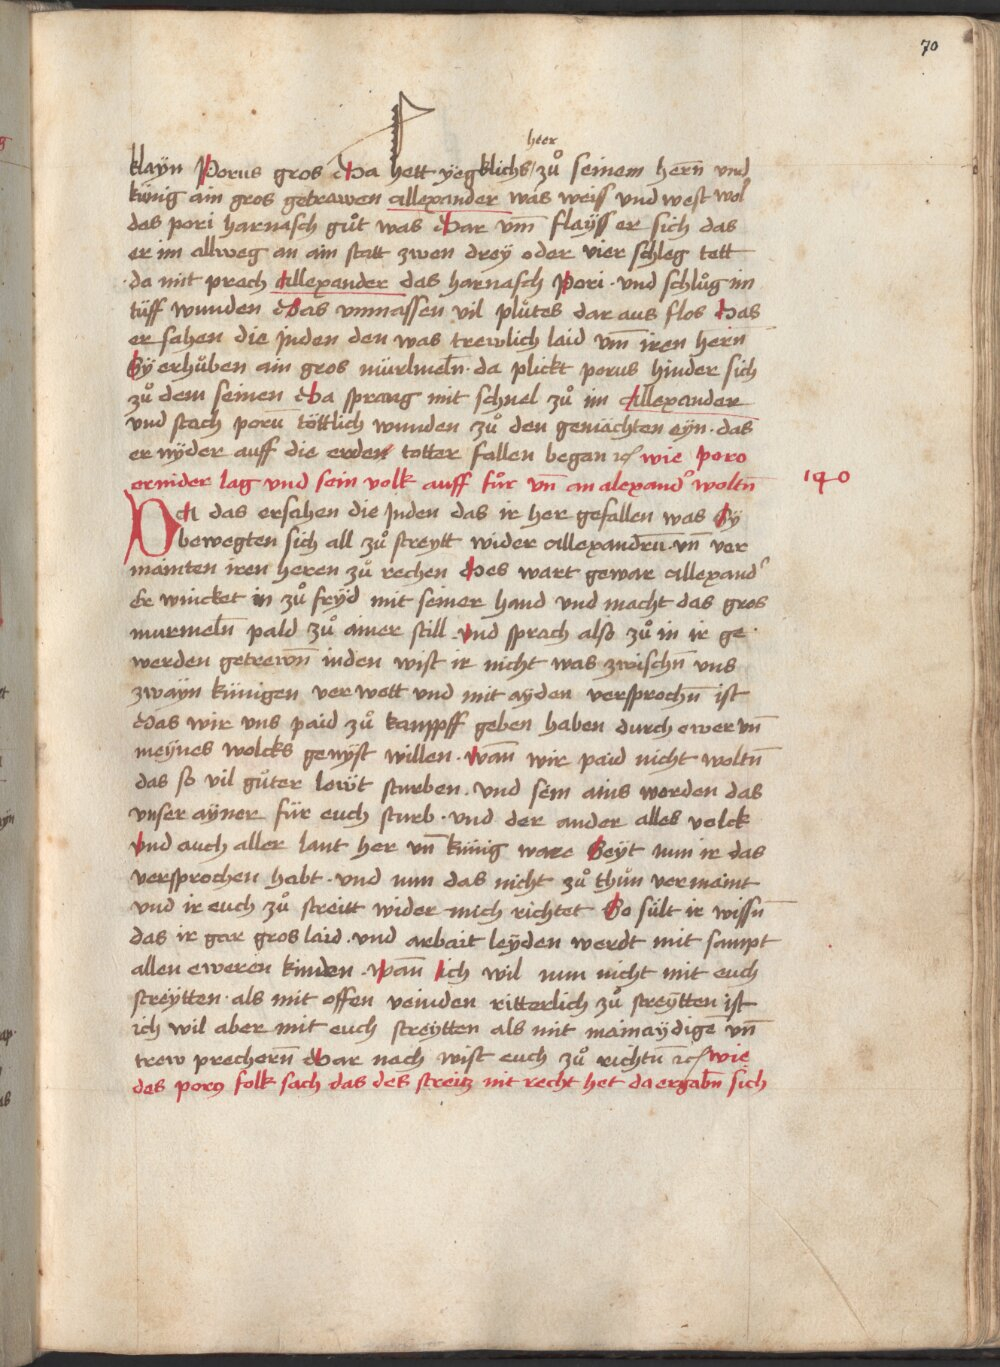 70
heer
klayn Porus gros Da hett yegklichs / zů seinem hern̄ und
künig ain gros getrawen allexander was weiss und west wol
das pori harnasch gůt was Dar vm̄ flayss er sich das
er im allweg an ain statt zwen drey oder vier schleg tett
da mit prach Allexander das harnasch Pori · und schlůg im
tüff wunden Das vnmassen vil plůtes dar aus flos Das
ersahen die Inden den was trewlich laid vm̄ iren hern̄
Sy erhůben ain gros mürlmeln̄ · da plickt porus hinder sich
zů dem seinen Da sprang mit schnel zů im Allexander
und stach porū töttlich wunden zů den gemächten eyn · das
er nyder auff die erden totter fallen began ꝛc wie poro
ernider lag und sein volk auff fůr vn̄ an alexandˀ woltn̄
140
Da das ersahen die Inden das ir her gefallen was Sy
bewegten sich all zů streytt wider allexandrū · vn̄ ver
mainten iren heren zů rechen Des wart gewar allexandˀ
Er wincket in zů fryd mit seiner hand und macht das gros
murmeln̄ pald zů ainer still · und sprach also zů in ir ge
werden getrewn̄ inden wist ir nicht was zwischn̄ vns
zwayn künigen verwett und mit ayden versprochn̄ ist
Das wir vns paid zů kampff geben haben durch ewer vn̄
meynes wolcks gewyst willen · wan̄ wir paid nicht woltn̄
das so vil gůter lowt sturben · und sem ains worden das
vnser ayner für euch sturb · und der ander alles volck
und auch aller lant her vn̄ künig ware Seyt nun ir das
versprochen habt · und nun das nicht zů thůn vermaint
und ir euch zů streitt wider mich richtet So sült ir wissn̄
das ir gar gros laid · und arbait leyden werdt mit sampt
allen eweren kinden · wan̄ ich wil nun nicht mit euch
streytten · als mit offen veinden ritterlich zů streytten ist
ich wil aber mit euch streytten als mit mainaydigē vn̄
trew prechern̄ Dar nach wist euch zů richtn̄ ꝛc wie
des porꝰ folk sach das des streitz nit recht het da ergabn̄ sich